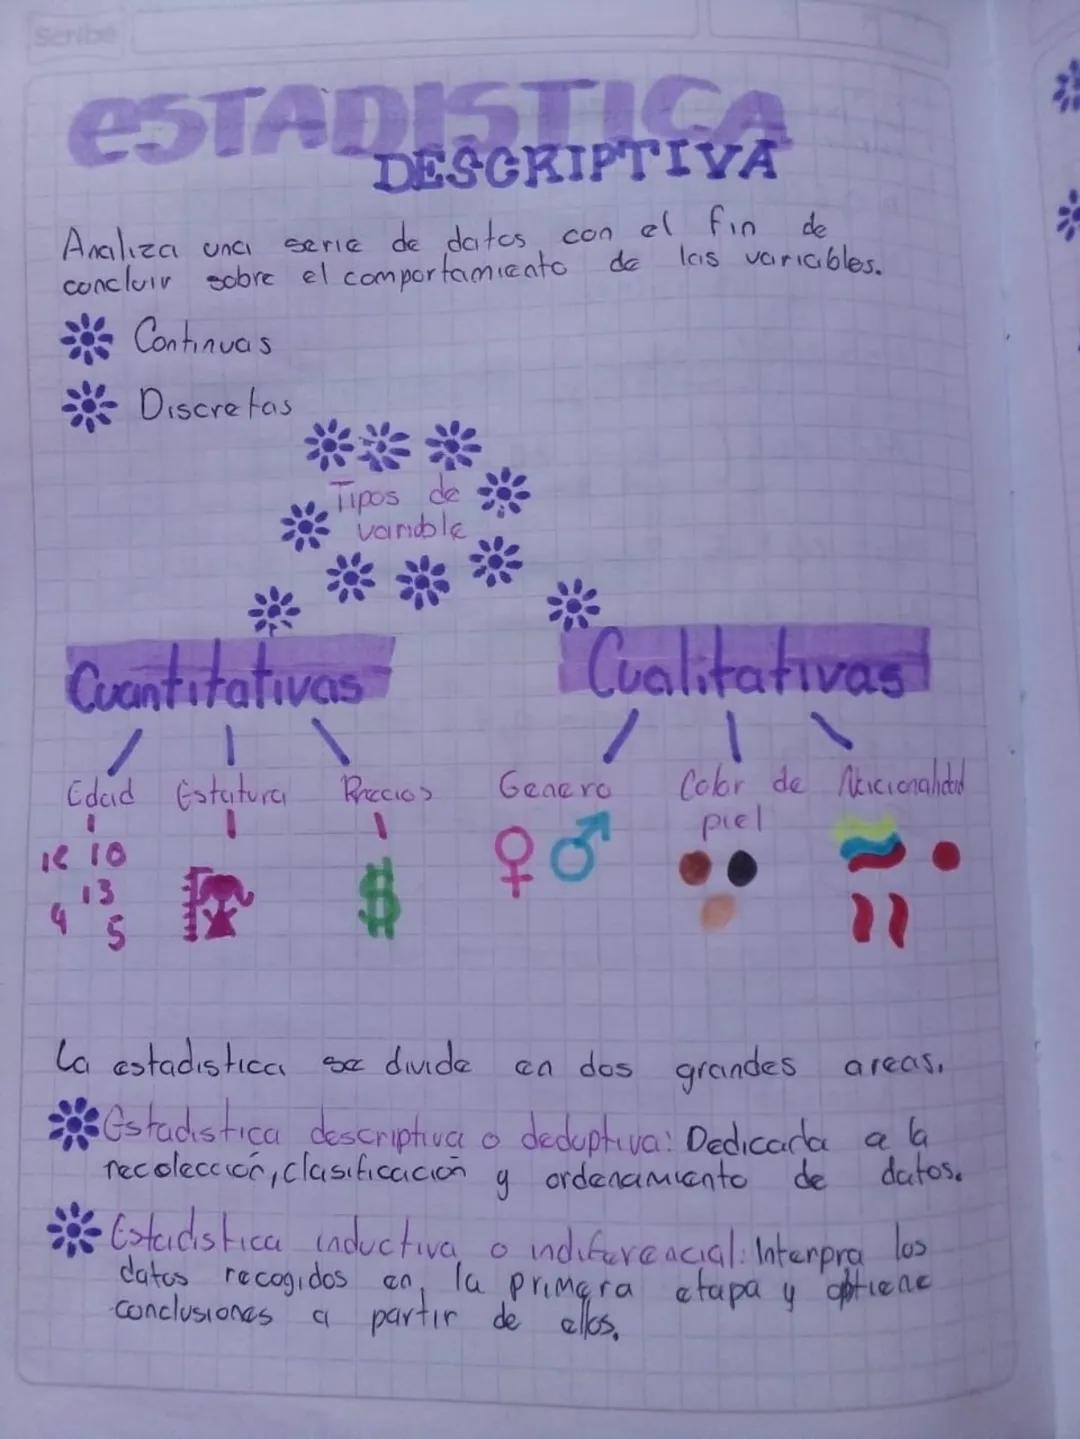 Scribe
eSTADISTICA
DESCRIPTIVA
Analiza una serie de datos con el fin de
concluir sobre el comportamiento de las variables.
Continuas
Discretas
Tipos de
variable
Cuantitativas
Cualitativas
Edad Estatura Precios Genero Color de Nacionalidad
piel
12 10
13
4 5
$
La estadistica se divide en dos grandes areas.
Estadistica descriptiva o deduptiva: Dedicada a la
recolección, clasificación y ordenamiento de datos.
Estadistica inductiva o indiferencial: Interpra los
datos recogidos en la primera etapa y obtiene
conclusiones a partir de ellos.